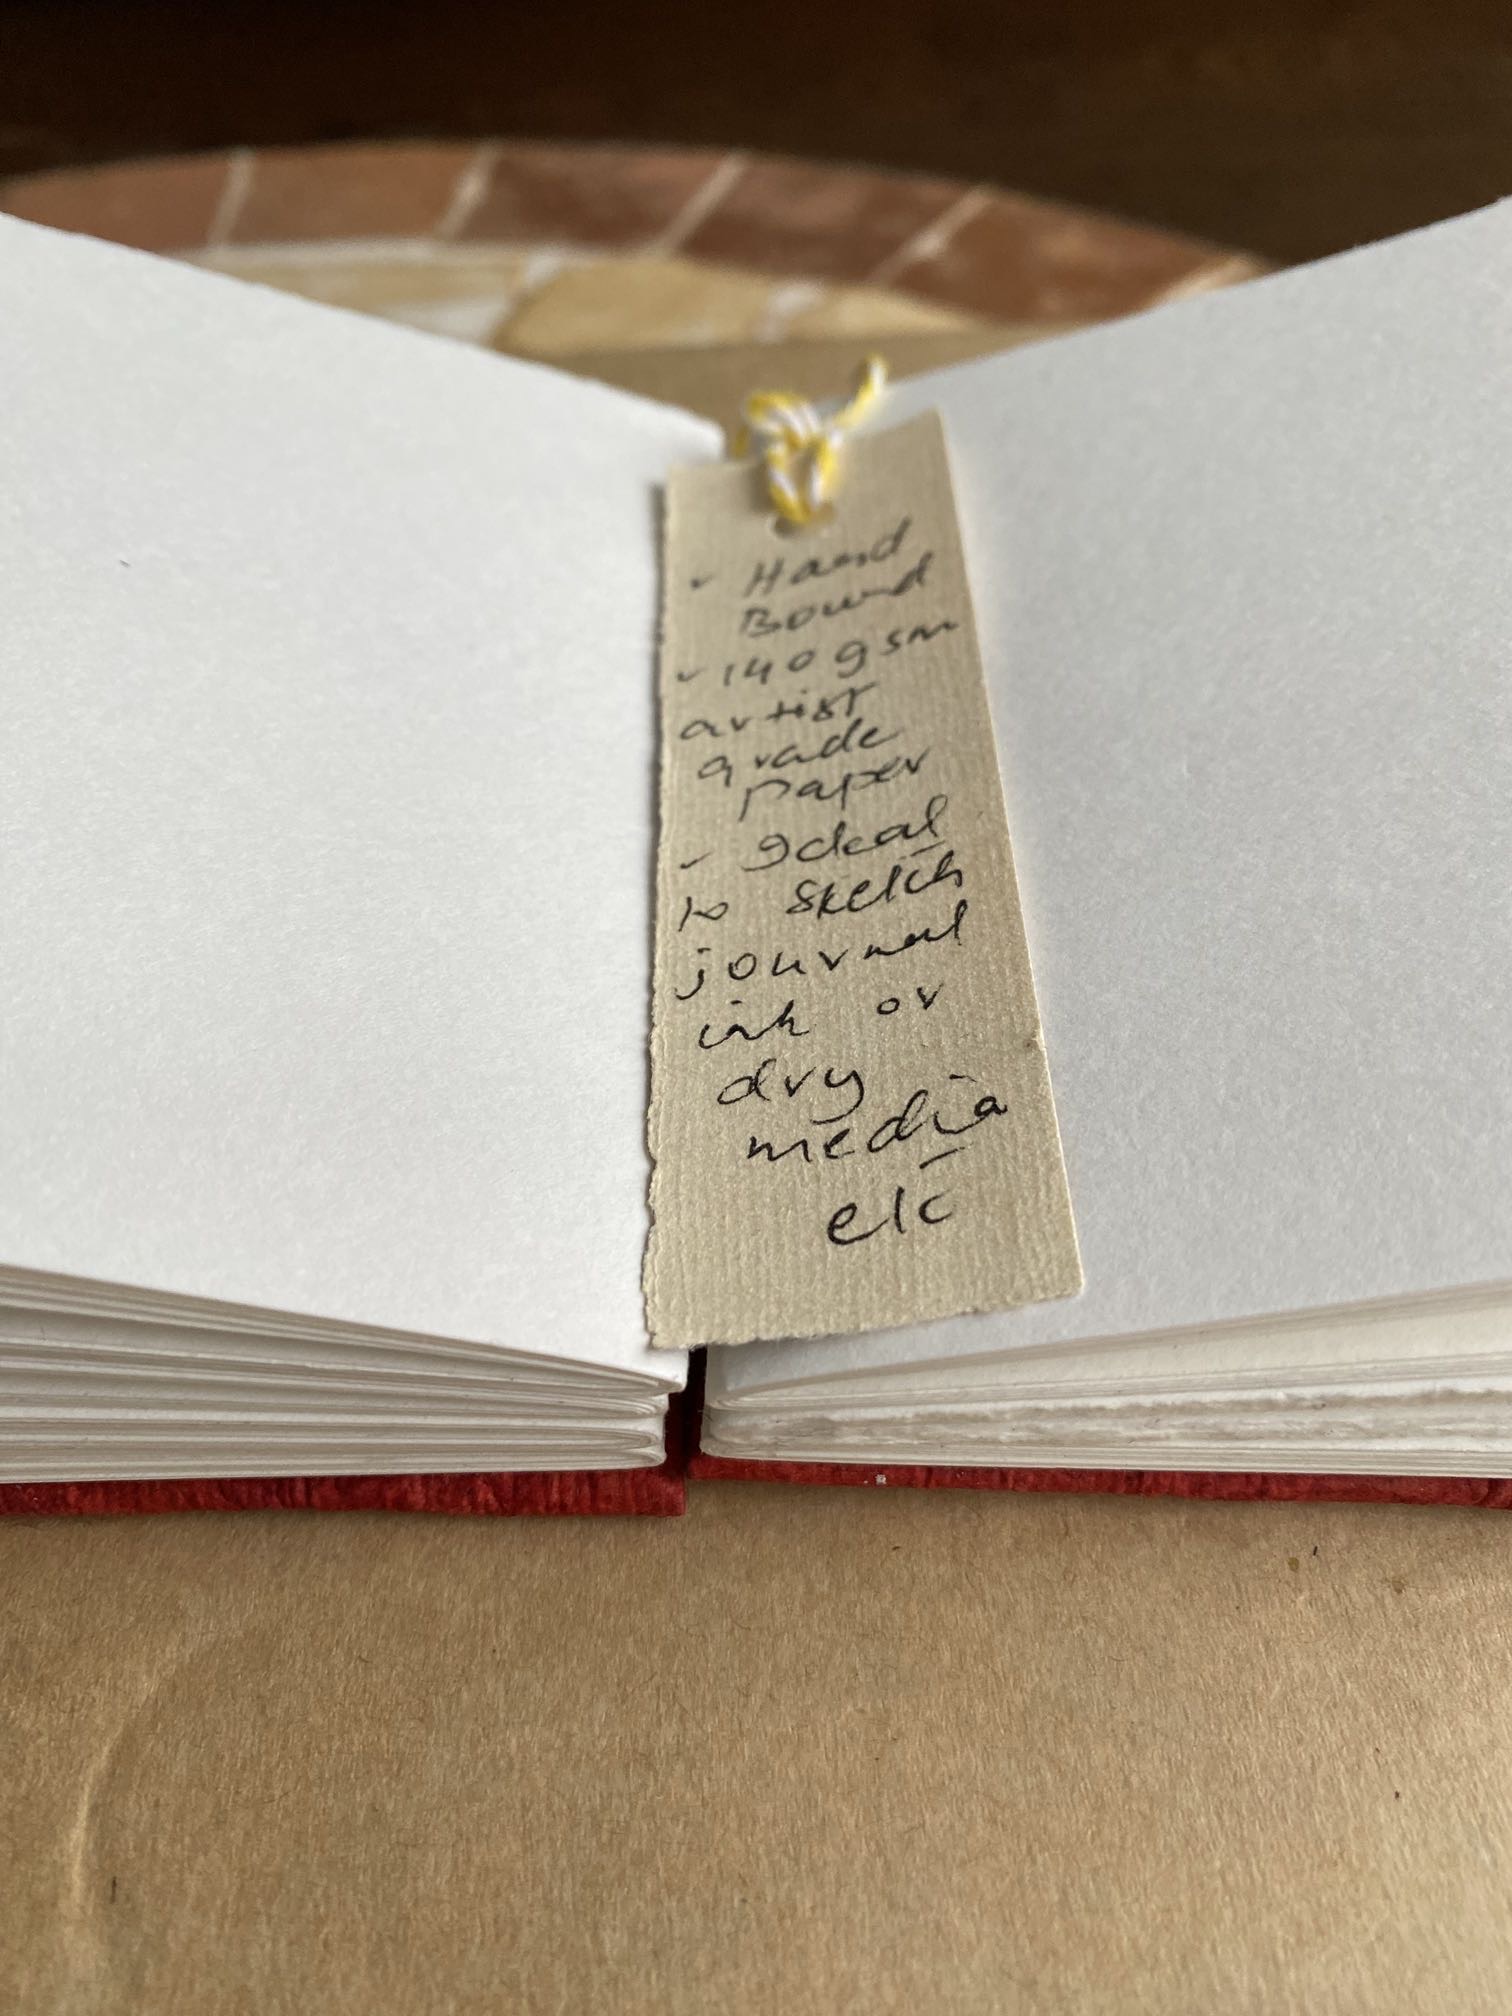 - Hand
Bound
- 140 gsm
artist
grade
paper
- Ideal
to sketch
journal
ink or
dry
media
etc